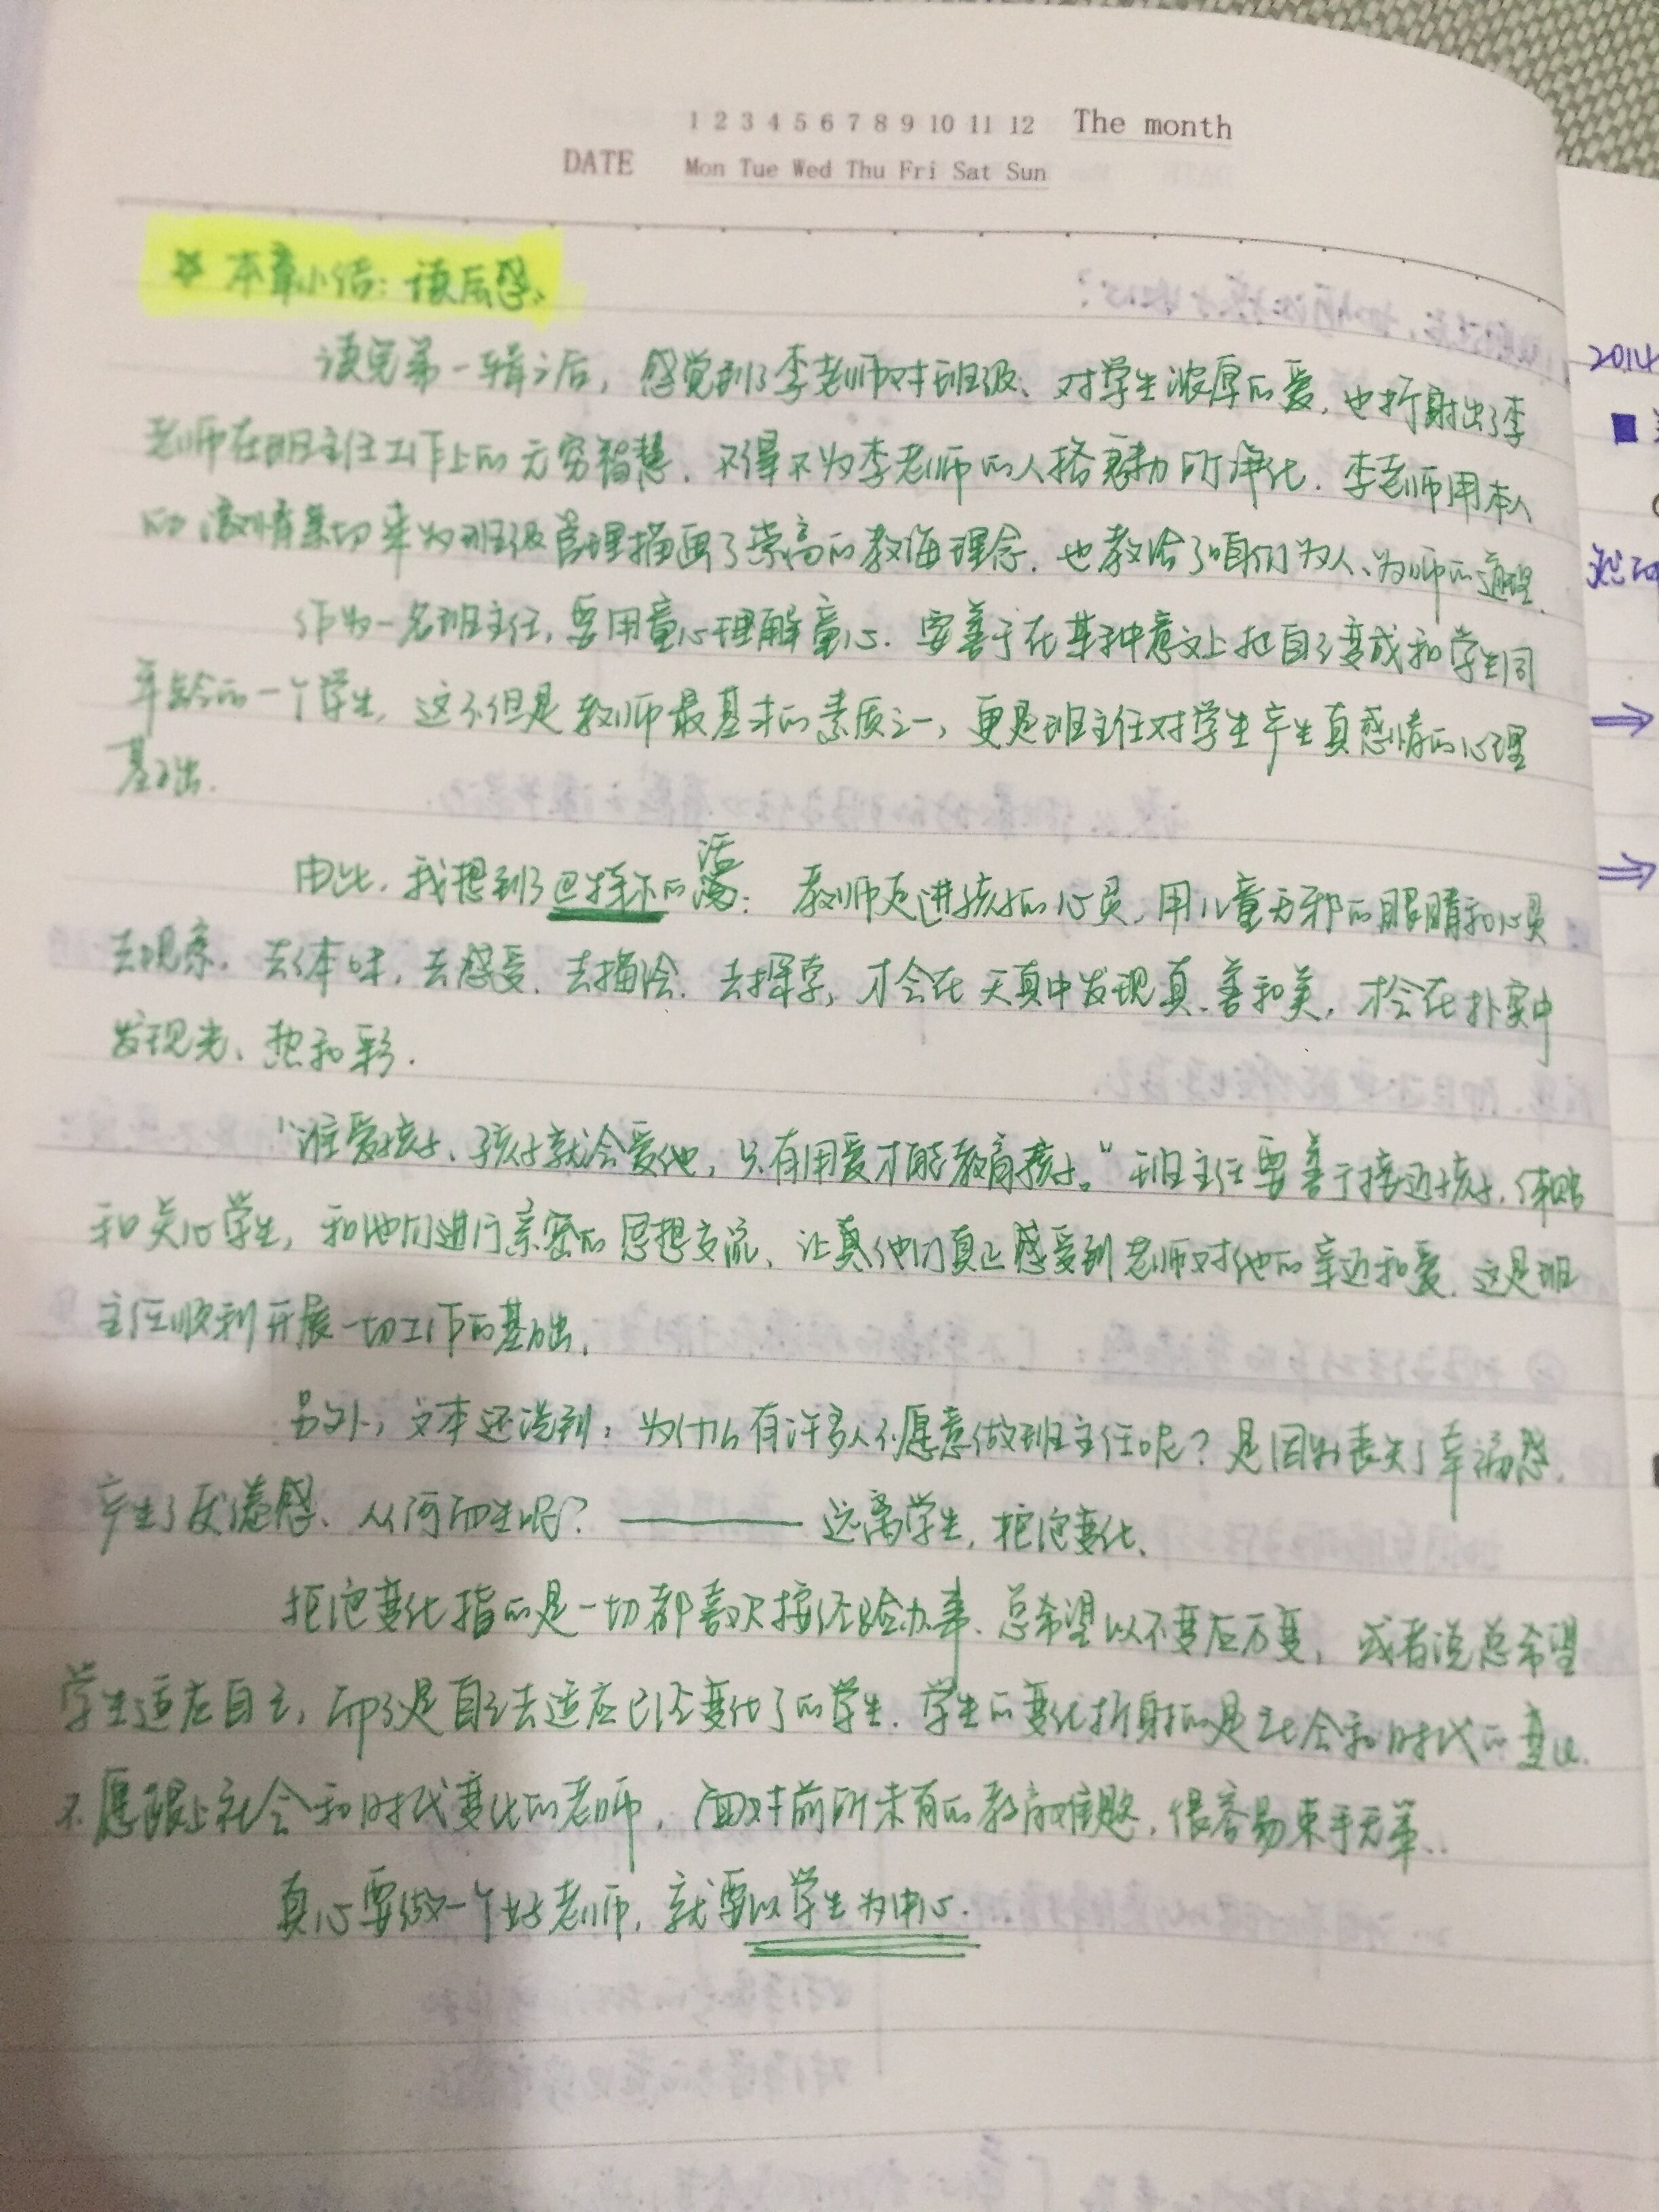 1 2 3 4 5 6 7 8 9 10 11 12 The month
DATE Mon Tue Wed Thu Fri Sat Sun
☆ 本章小结：读后感、
读完第一辑之后，感觉到了李老师对班级、对学生浓厚的爱，也折射出了李
老师在班主任工作上的无穷智慧，不得不为李老师的人格魅力所净化．李老师用本人
的激情 为班级管理描画了崇高的教海理念，也教给了咱们为人、为师的道理．
作为一名班主任，要用童心理解童心．要善于在某种意义上把自己变成和学生同
年龄的一个学生，这不但是教师最基本的素质之一，更是班主任对学生产生真感情的心理
基础．
由此，我想到了巴特尔的话：教师走进孩子的心灵，用儿童无邪的眼睛和心灵
去观察，去体味，去感受、去描绘、去探索，才会在天真中发现真、善和美，才会在朴实中
发现光、热和彩．
“谁爱孩子、孩子就会爱他，只有用爱才能教育孩子。”班主任要善于接近孩子，体贴
和关心学生，和他们进行亲密的思想交流、让他们真正感受到老师对他的亲近和爱．这是班
主任顺利开展一切工作的基础．
另外，文本还说到：为什么有许多人不愿意做班主任呢？是因为丧失了幸福感，
产生了倦感、从何而生呢？——— 远离学生，拒绝变化、
拒绝变化指的是一切都喜欢按经验办事、总希望以不变应万变，或者说总希望
学生适应自己，而不是自己去适应已经变化了的学生．学生的变化折射的是社会和时代的变化．
不愿跟上社会和时代变化的老师，面对前所未有的教育难题，很容易束手无策．
真心要做一个好老师，就要以学生为中心．
2014